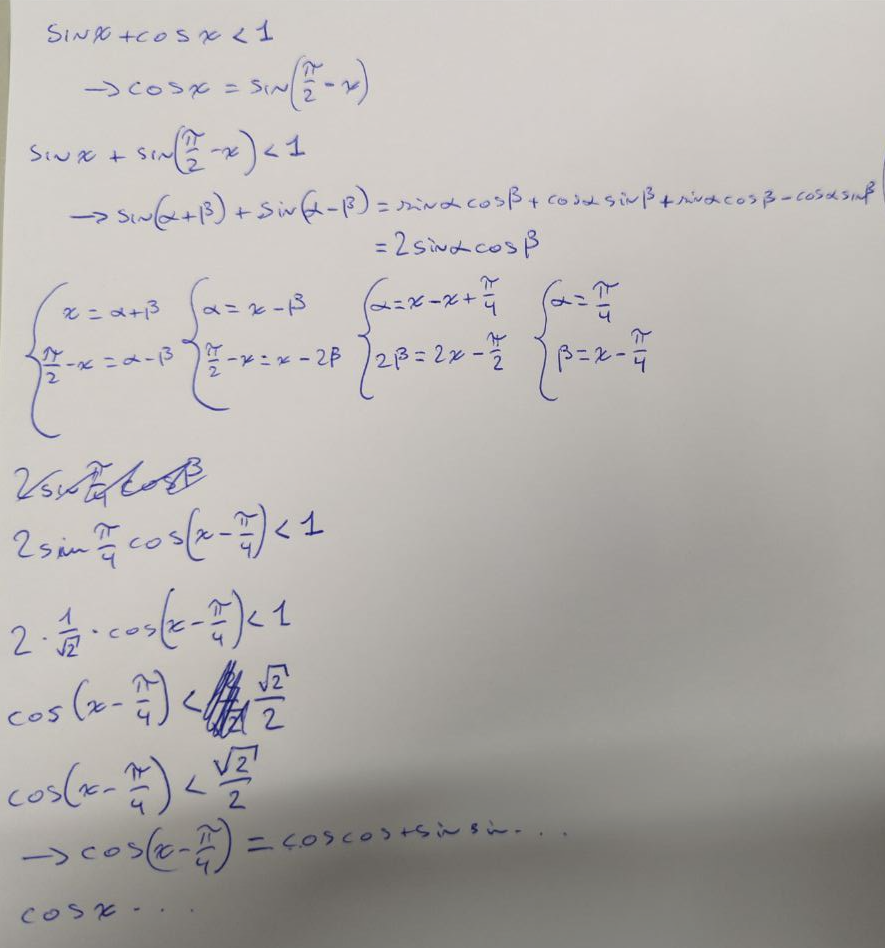 sinx + cosx < 1
→ cosx = sin(π/2 - x)
sinx + sin(π/2 - x) < 1
→ sin(α+β) + sin(α-β) = sinαcosβ + cosαsinβ + sinαcosβ - cosαsinβ
= 2sinαcosβ
{ x = α+β { α = x - β { α = x - x + π/4 { α = π/4
π/2 - x = α - β π/2 - x = x - 2β 2β = 2x - π/2 β = x - π/4
2sin π/4 cosβ
2sin π/4 cos(x - π/4) < 1
2 · 1/√2 · cos(x - π/4) < 1
cos(x - π/4) < √2/2
cos(x - π/4) < √2/2
→ cos(x - π/4) = coscos + sinsin...
cosx...